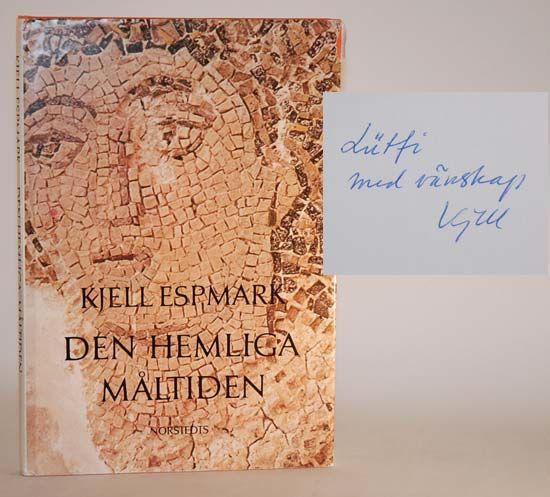 KJELL ESPMARK
DEN HEMLIGA
MÅLTIDEN
NORSTEDTS
KJELL ESPMARK DEN HEMLIGA MÅLTIDEN
Lütfi
med vänskap
Kjell